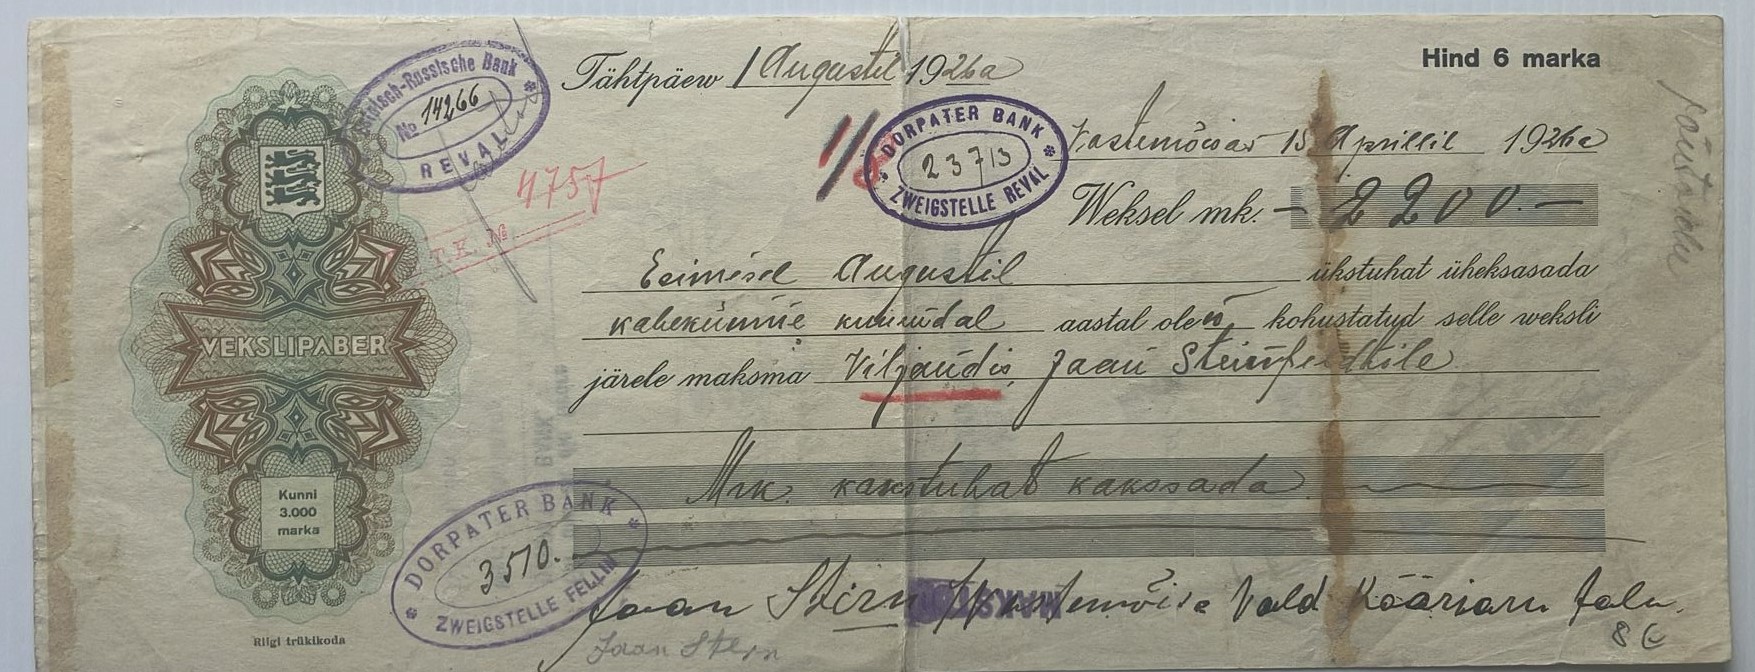 Hind 6 marka
Tähtpäew 1 Augustil 1926a
Russische Bank
No 14266
REVAL
4757
T.E. No
1/8
DORPATER BANK
23713
ZWEIGSTELLE REVAL
15 Aprillil 1926a
Weksel mk. - 2200.-
Esimesel Augustil ükstuhat üheksasada
kahekümne kuuendal aastal olen kohustatud selle weksli
järele maksma Viljandis, Jaan
Mrk. kakstuhat kakssada
VEKSLIPABER
Kunni
3.000
marka
Riigi trükikoda
DORPATER BANK
3510.
ZWEIGSTELLE FELLIN
Jaan Stern Wastemõisa Vald Kääriaru talu.
Jaan Stern
8€